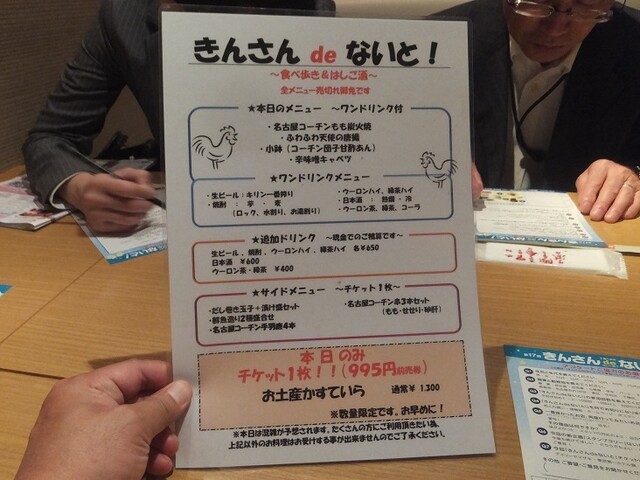 きんさん de ないと!
~食べ歩き&はしご酒~
全メニュー売切れ御免です
★本日のメニュー ~ワンドリンク付
・名古屋コーチンもも炭火焼
・ふわふわ天使の唐揚
・小鉢(コーチン団子甘酢あん)
・辛味噌キャベツ
★ワンドリンクメニュー
・生ビール:キリン一番搾り
・焼酎 : 芋 ・ 麦
(ロック、水割り、お湯割り)
・ウーロンハイ、緑茶ハイ
・日本酒 : 熱燗・冷
・ウーロン茶、緑茶、コーラ
★追加ドリンク ~現金でのご精算です~
生ビール、焼酎、ウーロンハイ、緑茶ハイ 各¥650
日本酒 ¥600
ウーロン茶・緑茶 ¥400
★サイドメニュー ~チケット1枚~
・だし巻き玉子+漬け盛セット
・鮮魚造り2種盛合せ
・名古屋コーチン手羽唐4本
・名古屋コーチン串3本セット
(もも・せせり・砂肝)
本日のみ
チケット1枚!!(995円前売券)
お土産かすていら 通常¥1,300
※数量限定です。お早めに!
※本日は混雑が予想されます。たくさんの方にご利用頂きたい為、
上記以外のお料理はお受けする事が出来ませんのでご了承ください。
きんさん de な